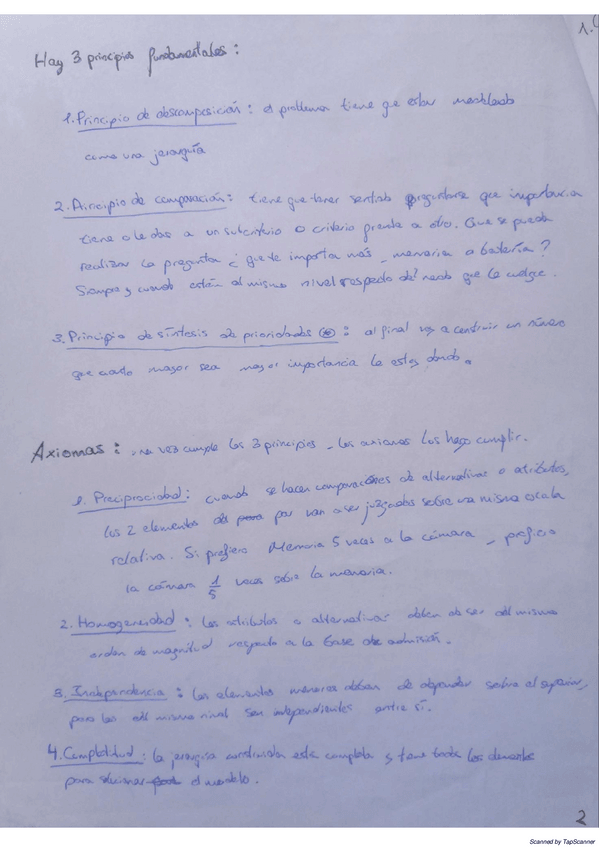 1.
Hay 3 principios fundamentales:
1. Principio de descomposición: el problema tiene que estar modelado
como una jerarquía
2. Principio de comparación: tiene que tener sentido preguntarse que importancia
tiene o le das a un subcriterio o criterio frente a otro. Que se pueda
realizar la pregunta ¿que te importa más, memoria o batería?
Siempre y cuando estén al mismo nivel respecto del nodo que le cuelgue.
3. Principio de síntesis de prioridades: al final vas a construir un número
que cuanto mayor sea mayor importancia le estás dando.
Axiomas: una vez cumple los 3 principios, los axiomas los hago cumplir.
1. Reciprocidad: cuando se hacen comparaciones de alternativas o atributos,
los 2 elementos del par van a ser juzgados sobre una misma escala
relativa. Si prefiero Memoria 5 veces a la cámara, prefiero
la cámara 1/5 veces sobre la memoria.
2. Homogeneidad: los atributos o alternativas deben de ser del mismo
orden de magnitud respecto a la base de
3. Independencia: los elementos menores deben de depender sobre el superior,
para los del mismo nivel son independientes entre sí.
4. Completitud: la jerarquía construida está completa y tiene todos los elementos
para el modelo.
2
Scanned by TapScanner